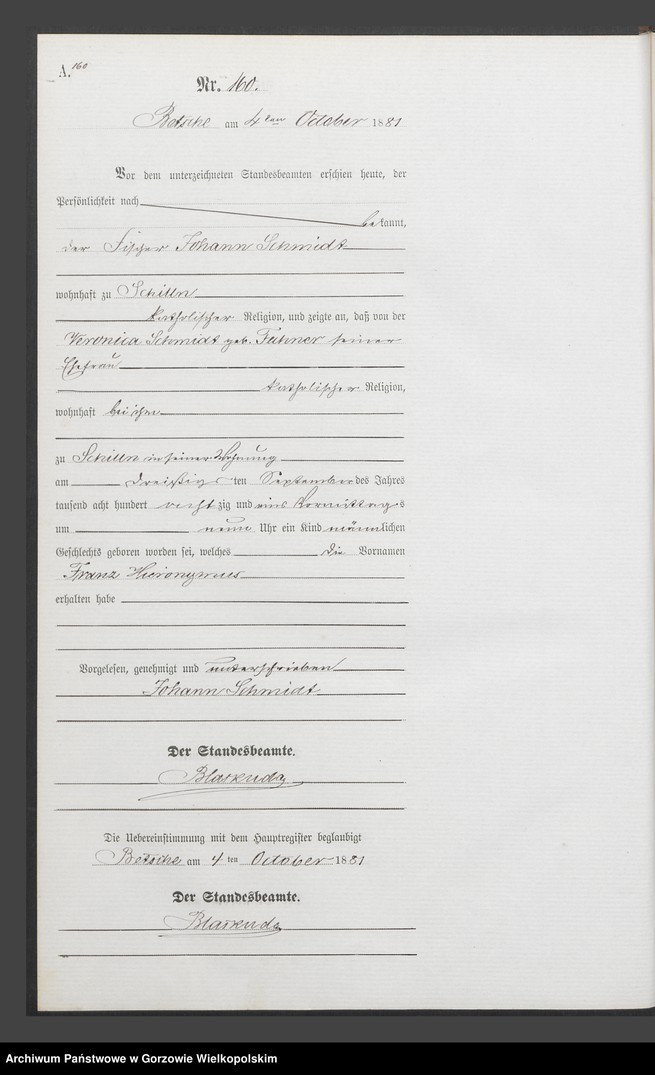 A. 160
Nr. 160.
Betsche am 4ten October 1881
Vor dem unterzeichneten Standesbeamten erschien heute, der
Persönlichkeit nach
bekannt,
der Fischer Johann Schmidt
wohnhaft zu Schilln
katholischer Religion, und zeigte an, daß von der
Veronica Schmidt geb. Führer seiner
Ehefrau
katholischer Religion,
wohnhaft bei ihm
zu Schilln in seiner Wohnung
am dreißigsten September des Jahres
tausend acht hundert achtzig und eins Vormittags
um neun Uhr ein Kind männlichen
Geschlechts geboren worden sei, welches die Vornamen
Franz Hieronymus
erhalten habe
Vorgelesen, genehmigt und unterschrieben
Johann Schmidt
Der Standesbeamte.
Die Uebereinstimmung mit dem Hauptregister beglaubigt
Betsche am 4ten October 1881
Der Standesbeamte.
Archiwum Państwowe w Gorzowie Wielkopolskim